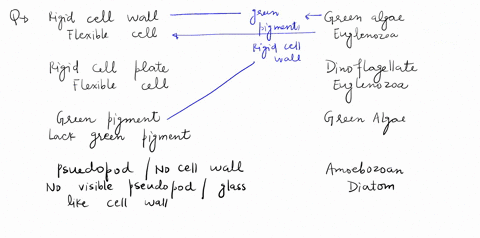 Q→ Rigid cell wall green Green algae
Flexible cell pigment, Euglenozoa
Rigid cell wall
Rigid cell plate Dinoflagellate
Flexible cell Euglenozoa
Green pigment Green Algae
Lack green pigment
psuedopod / No cell wall Amoebozoan
No visible pseudopod / glass Diatom
like cell wall